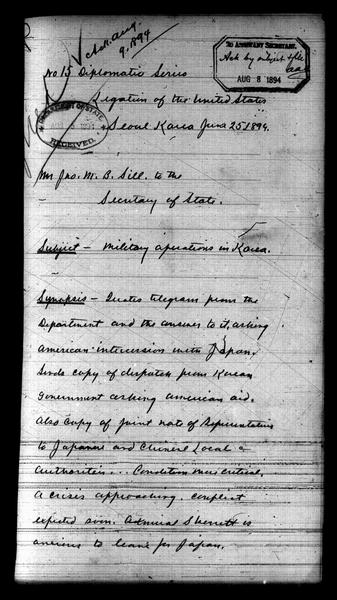 Ack. Aug.
9. 1894
2D ASSISTANT SECRETARY.
Ack by
AUG 8 1894
No 15 Diplomatic Series
Legation of the United States
Seoul Korea June 25 1894.
DEPARTMENT OF STATE
RECEIVED
Mr Jno. M. B. Sill. to the
Secretary of State.
Subject – Military operations in Korea.
Synopsis – Quotes telegram from the
Department and the answer to it, asking
American intervension with Japan,
Sends copy of dispatch from Korean
Government asking American aid.
Also Copy of Joint note of Representatives
to Japanese and Chinese Local
authorities... Condition more critical.
A crisis approaching. Conflict
expected soon. Admiral Skerrett is
anxious to leave for Japan.